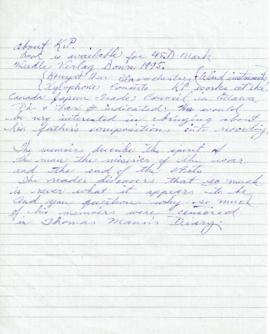 About K.P.
Book is available for 45 D Mark
Verlag Bonn 1995.
(Konzert Für Blasorchester) (Wind instruments
(Xylophone) Concerto K.P. works at the
Canada Japan Trade Council in Ottawa
P.S. is dedicated. He would
be very interested in bringing about
his father's compositions into recording
The memoirs describe the spirit of
the man the miseries of the war
and the end of the
The reader discovers that so much
is never what it appears to be
and you question why so much
of his memoirs were censored
in Thomas Mann's Diary.